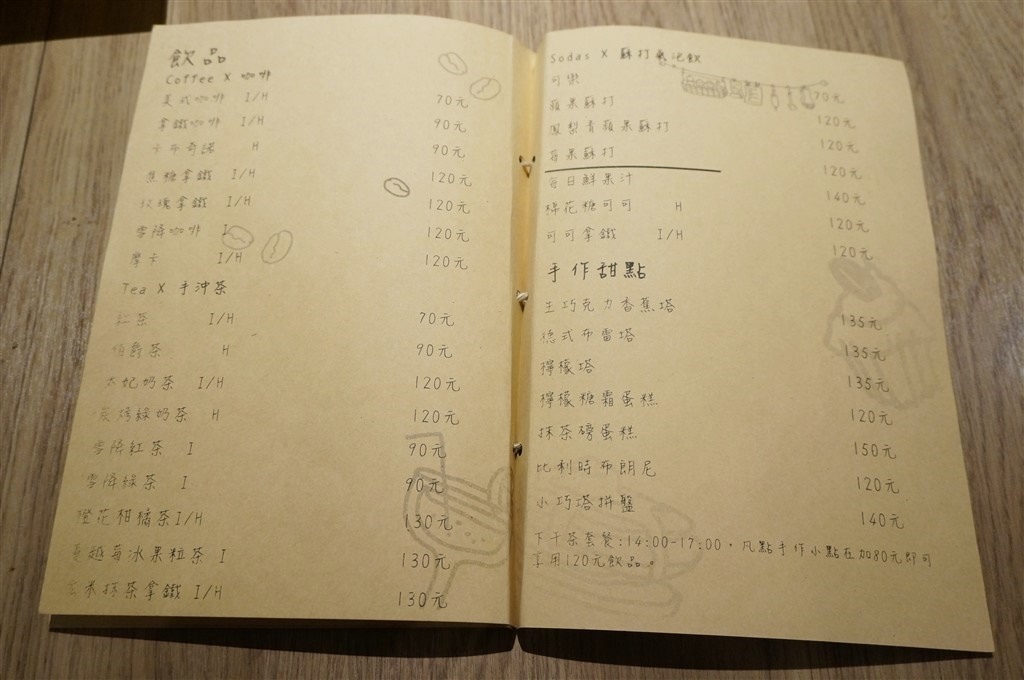 飲品
Coffee X 咖啡
美式咖啡 I/H 70元
拿鐵咖啡 I/H 90元
卡布奇諾 H 90元
焦糖拿鐵 I/H 120元
玫瑰拿鐵 I/H 120元
雪降咖啡 I 120元
摩卡 I/H 120元
Tea X 手沖茶
紅茶 I/H 70元
伯爵茶 H 90元
太妃奶茶 I/H 120元
焙綠奶茶 H 120元
雪降紅茶 I 90元
雪降綠茶 I 90元
橙花柑橘茶 I/H 130元
蔓越莓冰果粒茶 I 130元
抹茶拿鐵 I/H 130元
Sodas X 蘇打氣泡飲
可樂 70元
蘋果蘇打 120元
鳳梨青蘋果蘇打 120元
莓果蘇打 120元
每日鮮果汁 140元
棉花糖可可 H 120元
可可拿鐵 I/H 120元
手作甜點
生巧克力香蕉塔 135元
德式布雷塔 135元
檸檬塔 135元
檸檬糖霜蛋糕 120元
抹茶磅蛋糕 150元
比利時布朗尼 120元
小巧塔拼盤 140元
下午茶套餐:14:00-17:00,凡點手作小點在加80元即可
享用120元飲品。